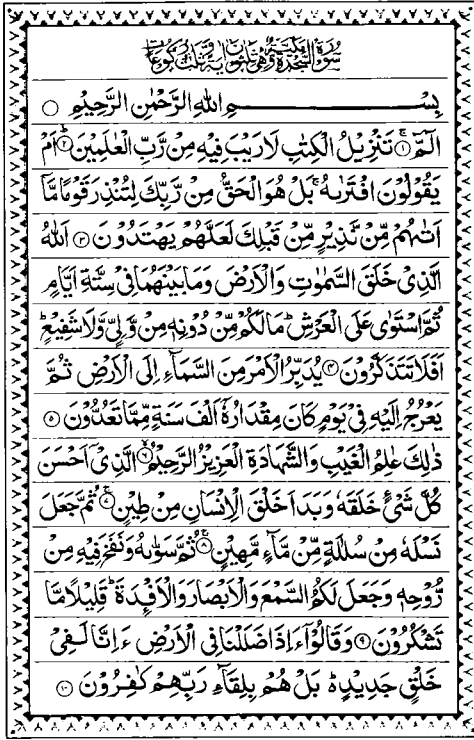 سورة السجدة مكية وهي ثلثون اية وثلث ركوعات
بِسْمِ اللّٰهِ الرَّحْمٰنِ الرَّحِيْمِ ○
الٓمّٓ ۚ﴿۱﴾ تَنْزِيْلُ الْكِتٰبِ لَا رَيْبَ فِيْهِ مِنْ رَّبِّ الْعٰلَمِيْنَ ؕ﴿۲﴾ اَمْ
يَقُوْلُوْنَ افْتَرٰىهُ ۚ بَلْ هُوَ الْحَقُّ مِنْ رَّبِّكَ لِتُنْذِرَ قَوْمًا مَّاۤ
اَتٰىهُمْ مِّنْ نَّذِيْرٍ مِّنْ قَبْلِكَ لَعَلَّهُمْ يَهْتَدُوْنَ ﴿۳﴾ اَللّٰهُ
الَّذِيْ خَلَقَ السَّمٰوٰتِ وَالْاَرْضَ وَمَا بَيْنَهُمَا فِيْ سِتَّةِ اَيَّامٍ
ثُمَّ اسْتَوٰى عَلَى الْعَرْشِ ؕ مَا لَكُمْ مِّنْ دُوْنِهٖ مِنْ وَّلِيٍّ وَّلَا شَفِيْعٍ ؕ
اَفَلَا تَتَذَكَّرُوْنَ ﴿۴﴾ يُدَبِّرُ الْاَمْرَ مِنَ السَّمَآءِ اِلَى الْاَرْضِ ثُمَّ
يَعْرُجُ اِلَيْهِ فِيْ يَوْمٍ كَانَ مِقْدَارُهٗۤ اَلْفَ سَنَةٍ مِّمَّا تَعُدُّوْنَ ﴿۵﴾
ذٰلِكَ عٰلِمُ الْغَيْبِ وَالشَّهَادَةِ الْعَزِيْزُ الرَّحِيْمُ ۙ﴿۶﴾ الَّذِيْۤ اَحْسَنَ
كُلَّ شَيْءٍ خَلَقَهٗ وَبَدَاَ خَلْقَ الْاِنْسَانِ مِنْ طِيْنٍ ۚ﴿۷﴾ ثُمَّ جَعَلَ
نَسْلَهٗ مِنْ سُلٰلَةٍ مِّنْ مَّآءٍ مَّهِيْنٍ ۚ﴿۸﴾ ثُمَّ سَوّٰىهُ وَنَفَخَ فِيْهِ مِنْ
رُّوْحِهٖ وَجَعَلَ لَكُمُ السَّمْعَ وَالْاَبْصَارَ وَالْاَفْـِٕدَةَ ؕ قَلِيْلًا مَّا
تَشْكُرُوْنَ ﴿۹﴾ وَقَالُوْۤا ءَاِذَا ضَلَلْنَا فِي الْاَرْضِ ءَاِنَّا لَفِيْ
خَلْقٍ جَدِيْدٍ ؕ۬ بَلْ هُمْ بِلِقَآئِ رَبِّهِمْ كٰفِرُوْنَ ﴿۱۰﴾